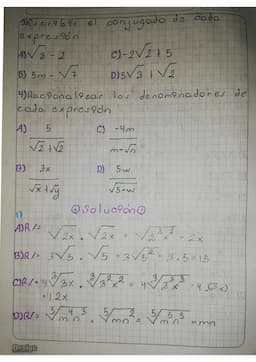 3) Escribir el conjugado de cada
expresión
A) √3 - 2 C) -2√2 + 5
B) 5m - √7 D) 5√3 + √2
4) Racionalizar los denominadores de
cada expresión
A) 5 / √2+√2 C) -4m / m-√n
B) 3x / √x+√y D) 5w / √5-w
⊙Solución⊙
1)
A) R/= √2x · √2x = √2²x² = 2x
B) R/= 3√5 · √5 = 3√5² = 3·5 = 15
C) R/= 4∛3x · ∛3²x² = 4∛3³x³ = 4(3x)
= 12x
D) R/= ⁵√m⁴n³ · ⁵√mn² = ⁵√m⁵n⁵ = mn
Design